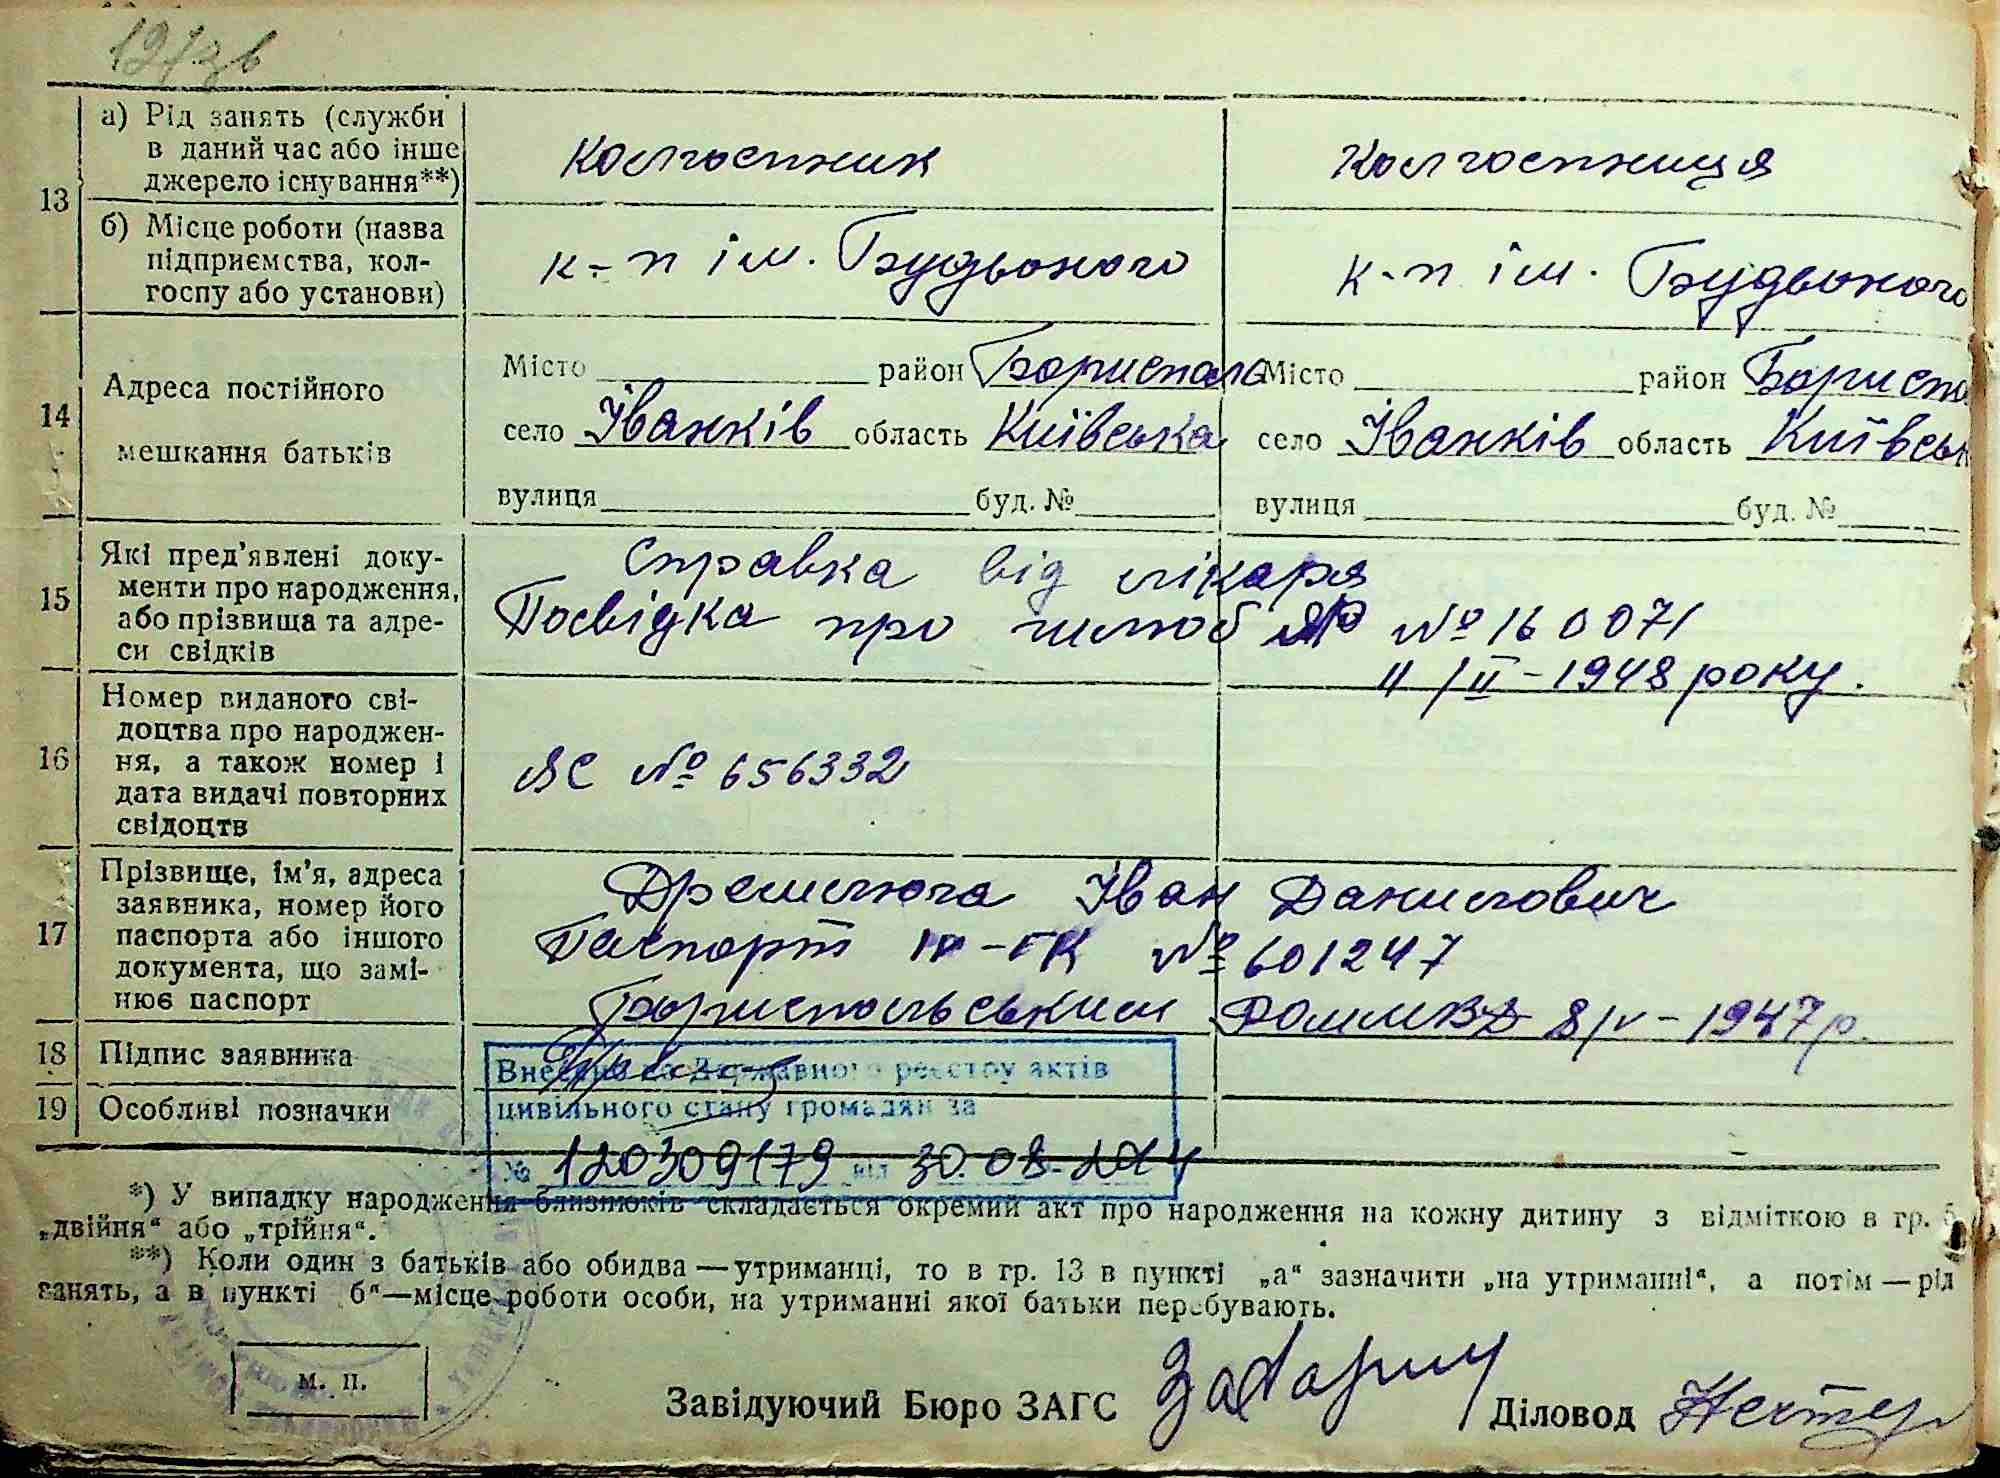 13 а) Рід занять (служби в даний час або інше джерело існування**)
Колгоспник
Колгоспниця
б) Місце роботи (назва підприємства, колгоспу або установи)
к-п ім. Будьоного
к-п ім. Будьоного
14 Адреса постійного мешкання батьків
Місто район Бориспола
село Іванків область Київська
вулиця буд. №
Місто район Бориспо
село Іванків область Київськ
вулиця буд. №
15 Які пред'явлені документи про народження, або прізвища та адреси свідків
Справка від лікаря
Посвідка про шлюб ЯР № 160071
11/II-1948 року.
16 Номер виданого свідоцтва про народження, а також номер і дата видачі повторних свідоцтв
ЯС № 656332
17 Прізвище, ім'я, адреса заявника, номер його паспорта або іншого документа, що замінює паспорт
Дремлюга Іван Данилович
Паспорт IV-ГК № 601247
Бориспольським 8/IV-1947р.
18 Підпис заявника
19 Особливі позначки
Внесено до Державного реєстру актів
цивільного стану громадян за
№ 120309179 від 30.08.2024
*) У випадку народження близнюків складається окремий акт про народження на кожну дитину з відміткою в гр.
„двійня“ або „трійня“.
**) Коли один з батьків або обидва — утриманці, то в гр. 13 в пункті „а“ зазначити „на утриманні“, а потім — рід
занять, а в пункті б“—місце роботи особи, на утриманні якої батьки перебувають.
м. п.
Завідуючий Бюро ЗАГС
Діловод